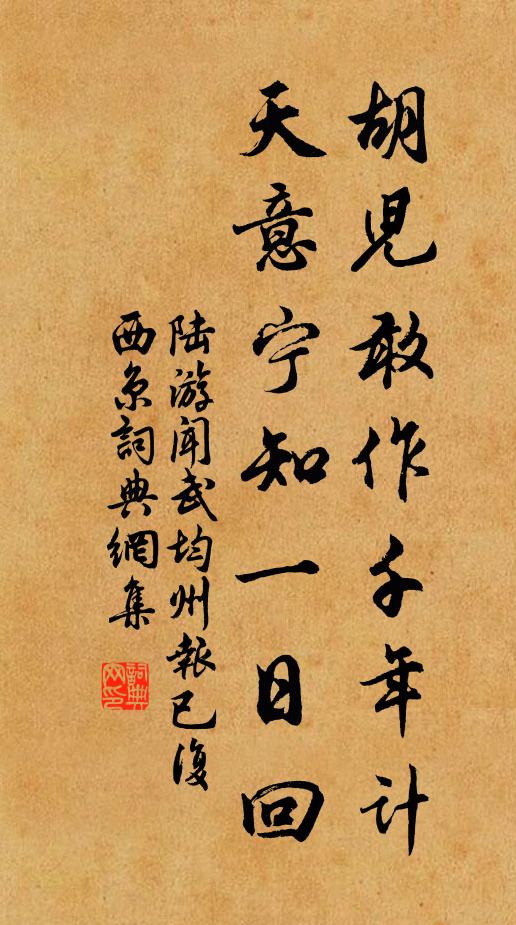 胡児敢作千年计
天意宁知一日回
陆游闻武均州報已復
西京詞典網集
詞典网印